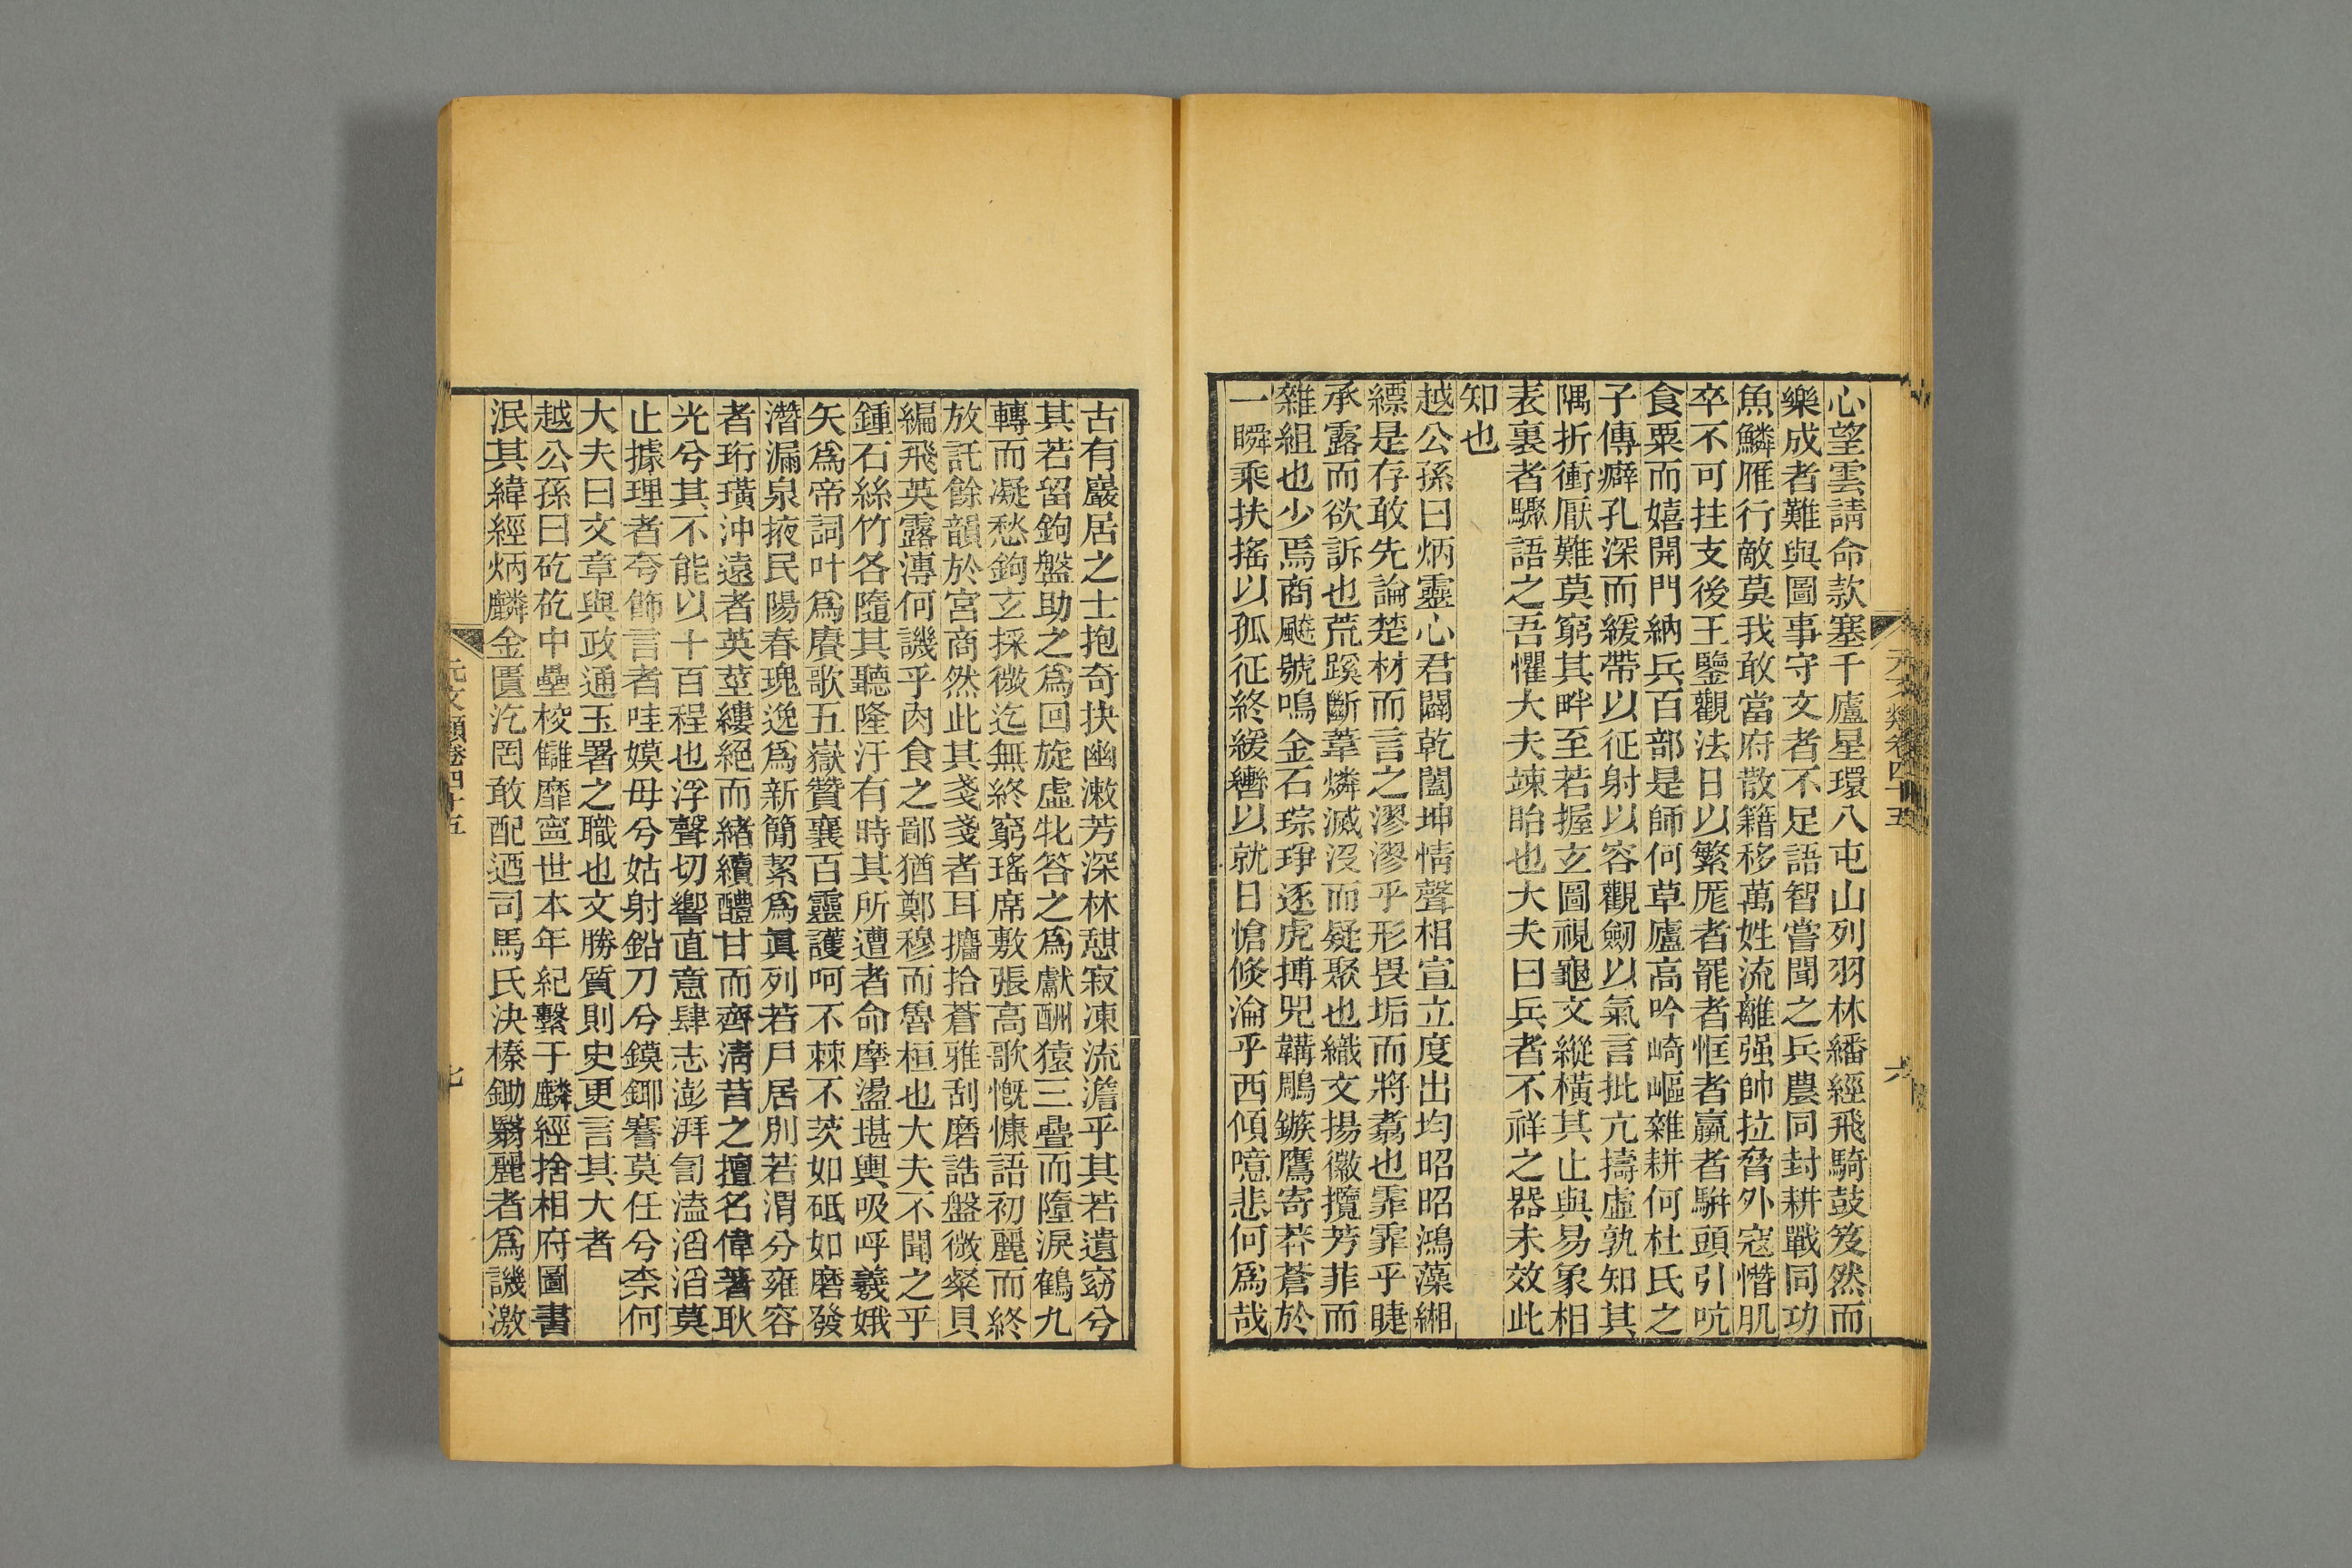 心望雲請命款塞千廬星環八屯山列羽林繙經飛騎鼓笈然而
樂成者難與圖事守文者不足語智嘗聞之兵農同封耕戰同功
魚鱗雁行敵莫我敢當府散籍移萬姓流離强帥拉脅外寇憯肌
卒不可拄支後王鑒觀法日以繁厖者罷者恇者羸者騈頭引吭
食粟而嬉開門納兵百部是師何草廬高吟崎嶇雜耕何杜氏之
子傳癖孔深而緩帶以征射以容觀劒以氣言批亢擣虛孰知其
隅折衝厭難莫窮其畔至若握玄圖視龜文縱橫其止與易象相
表裏者驟語之吾懼大夫竦眙也大夫曰兵者不祥之器未效此
知也
越公孫曰炳靈心君闢乾闔坤情聲相宣立度出均昭昭鴻藻緗
縹是存敢先論楚材而言之漻漻乎形畏垢而將翥也霏霏乎睫
承露而欲訴也荒蹊斷葦燐滅沒而疑聚也織文揚徽攬芳菲而
雜組也少焉商颷號鳴金石琮琤逐虎搏兕韝鵰鏃鷹寄莽蒼於
一瞬乘扶搖以孤征終緩轡以就日愴倐淪乎西傾噫悲何爲哉
元文類卷四十五
六
古有巖居之士抱奇抉幽漱芳深林憇寂凍流澹乎其若遺窈兮
其若留鉤盤助之爲回旋虛牝答之爲獻酬猿三疊而隳淚鶴九
轉而凝愁鉤玄採微迄無終窮瑤席敷張高歌慨慷語初麗而終
放託餘韻於宮商然此其戔戔者耳擂拾蒼雅刮磨誥盤微粲貝
編飛英露漙何譏乎肉食之鄙猶鄭穆而魯桓也大夫不聞之乎
鍾石絲竹各隨其聽隆汙有時其所遭者命摩盪堪輿吸呼羲娥
矢爲帝詞叶爲賡歌五嶽贊襄百靈護呵不棘不茨如砥如磨發
潛漏泉掖民陽春瑰逸爲新簡絜爲眞列若尸居別若渭分雍容
者珩璜沖遠者英莖縷絕而緒續醴甘而齊淸昔之擅名偉著耿
光兮其不能以十百程也浮聲切響直意肆志澎湃訇溘滔滔莫
止據理者夸飾言者哇嫫母兮姑射鉛刀兮鏌鎁騫莫任兮柰何
大夫曰文章與政通玉署之職也文勝質則史更言其大者
越公孫曰矻矻中壘校讎靡寍世本年紀繫于麟經捨相府圖書
泯其緯經炳麟金匱汔罔敢配迺司馬氏決榛鋤翳麗者爲譏激
元文類卷四十五
七